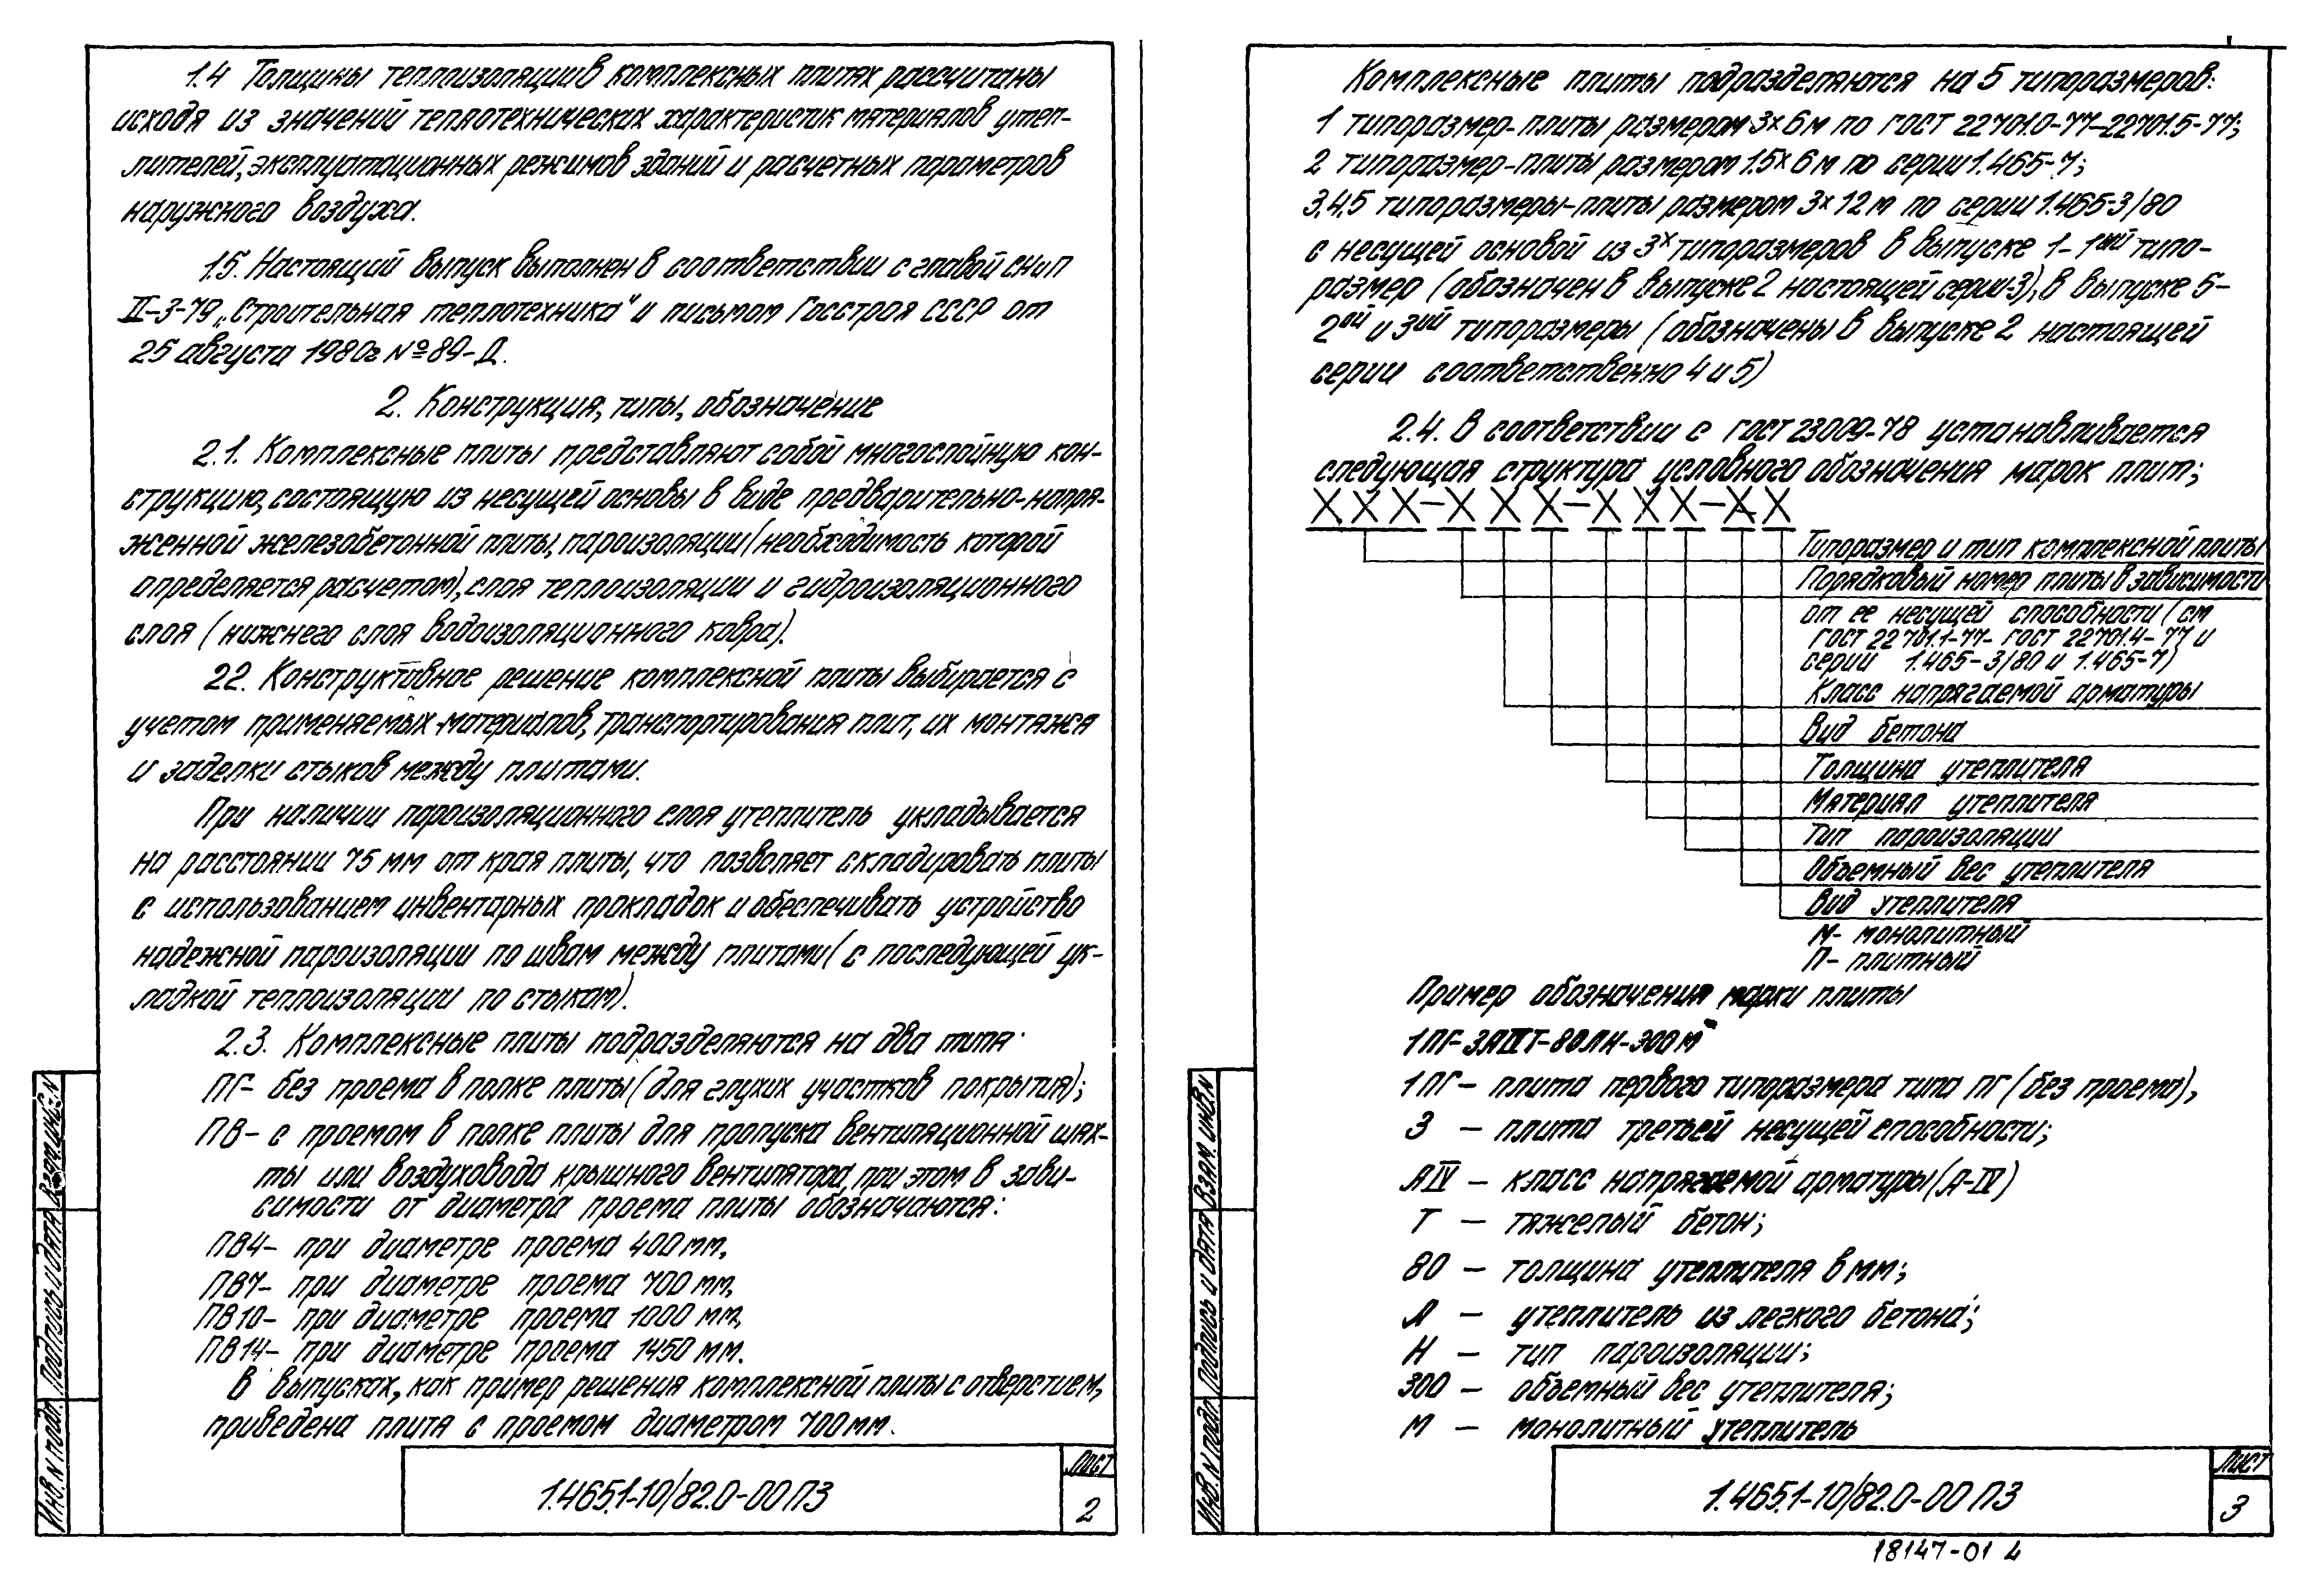 1.4 Толщины теплоизоляции в комплексных плитах рассчитаны
исходя из значений теплотехнических характеристик материалов утеп-
лителей, эксплуатационных режимов зданий и расчетных параметров
наружного воздуха.
1.5. Настоящий выпуск выполнен в соответствии с главой СНиП
II-3-79 „Строительная теплотехника" и письмом Госстроя СССР от
25 августа 1980г №89-Д.
2. Конструкция, типы, обозначение
2.1. Комплексные плиты представляют собой многослойную кон-
струкцию, состоящую из несущей основы в виде предварительно-напря-
женной железобетонной плиты, пароизоляции (необходимость которой
определяется расчетом), слоя теплоизоляции и гидроизоляционного
слоя (нижнего слоя водоизоляционного ковра).
2.2. Конструктивное решение комплексной плиты выбирается с
учетом применяемых материалов, транспортирования плит, их монтажа
и заделки стыков между плитами.
При наличии пароизоляционного слоя утеплитель укладывается
на расстоянии 75 мм от края плиты, что позволяет складировать плиты
с использованием инвентарных прокладок и обеспечивать устройство
надежной пароизоляции по швам между плитами (с последующей ук-
ладкой теплоизоляции по стыкам).
2.3. Комплексные плиты подразделяются на два типа:
ПГ- без проема в полке плиты (для глухих участков покрытия);
ПВ- с проемом в полке плиты для пропуска вентиляционной шах-
ты или воздуховода крышного вентилятора, при этом в зави-
симости от диаметра проема плиты обозначаются:
ПВ4- при диаметре проема 400 мм,
ПВ7- при диаметре проема 700 мм,
ПВ10- при диаметре проема 1000 мм,
ПВ14- при диаметре проема 1450 мм.
В выпусках, как пример решения комплексной плиты с отверстием,
приведена плита с проемом диаметром 700 мм.
1.465.1-10/82.0-00 ПЗ
Лист
2
Взам.инв.N
Подпись и дата
Инв.N подл
Комплексные плиты подразделяются на 5 типоразмеров:
1 типоразмер-плиты размером 3×6 м по ГОСТ 22701.0-77-22701.5-77;
2 типоразмер-плиты размером 1.5×6 м по серии 1.465-7;
3,4,5 типоразмеры-плиты размером 3×12 м по серии 1.465-3/80
с несущей основой из 3х типоразмеров в выпуске 1- 1ый типо-
размер (обозначен в выпуске 2 настоящей серии-3), в выпуске 5-
2ой и 3ий типоразмеры (обозначены в выпуске 2 настоящей
серии соответственно 4 и 5)
2.4. В соответствии с ГОСТ 23009-78 устанавливается
следующая структура условного обозначения марок плит;
XXX-XXX-XXX-XX
Типоразмер и тип комплексной плиты
Порядковый номер плиты в зависимости
от ее несущей способности (см
ГОСТ 22701.1-77- ГОСТ 22701.4-77 и
серии 1.465-3/80 и 1.465-7)
Класс напрягаемой арматуры
Вид бетона
Толщина утеплителя
Материал утеплителя
Тип пароизоляции
Объемный вес утеплителя
Вид утеплителя
М- монолитный
П- плитный
Пример обозначения марки плиты
1ПГ-3АIVТ-80ЛН-300М
1ПГ- плита первого типоразмера типа ПГ (без проема),
3 - плита третьей несущей способности;
АIV - класс напрягаемой арматуры (А-IV)
Т - тяжелый бетон;
80 - толщина утеплителя в мм;
Л - утеплитель из легкого бетона;
Н - тип пароизоляции;
300 - объемный вес утеплителя;
М - монолитный утеплитель
1.465.1-10/82.0-00 ПЗ
Лист
3
Взам.инв.N
Подпись и дата
Инв.N подл
18147-01 4